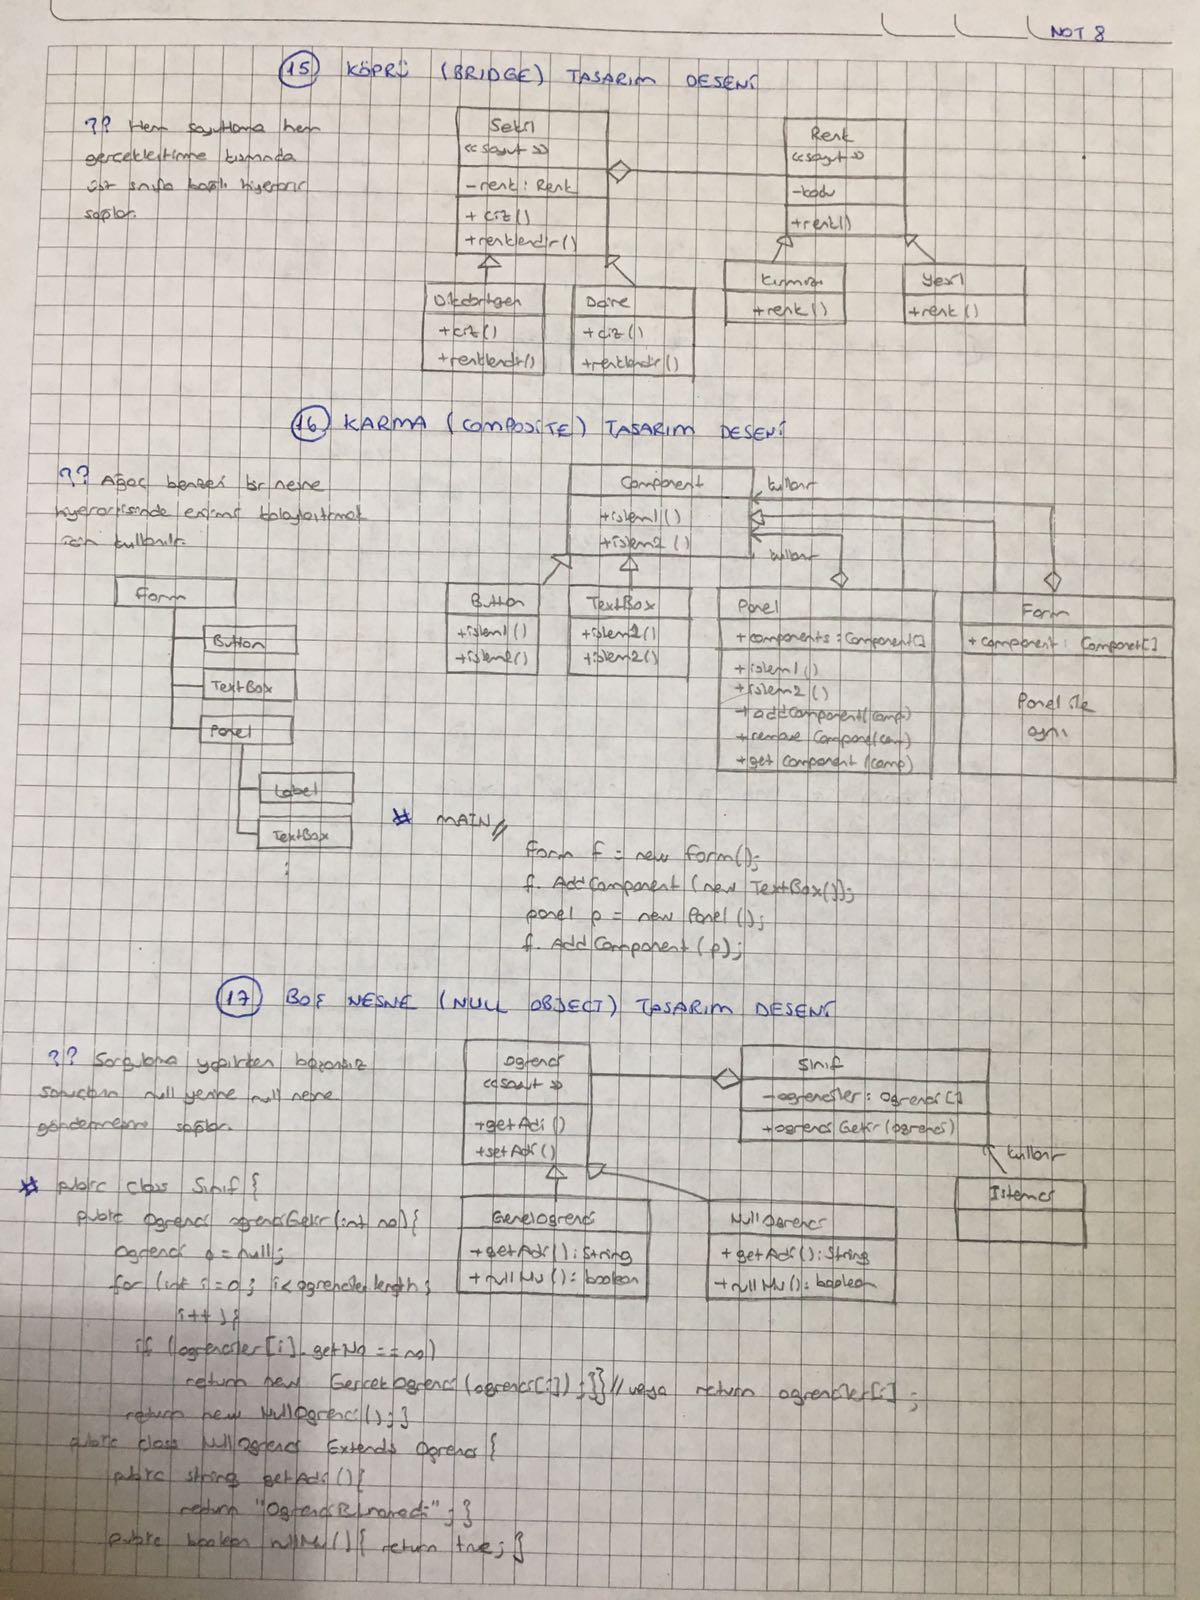 NOT 8
15 KÖPRÜ (BRIDGE) TASARIM DESENİ
?? Hem soyutlama hem
gerçekleştirme kısmında
üst sınıfa bağlı hiyerarşi
sağlar.
Sekil
<<soyut>>
-renk: Renk
+ciz()
+renklendir()
Renk
<<soyut>>
-kodu
+renk()
Dikdortgen
+ciz()
+renklendir()
Daire
+ciz()
+renklendir()
Kırmızı
+renk()
Yesil
+renk()
16 KARMA (COMPOSİTE) TASARIM DESENİ
?? Ağaç benzeri bir nesne
hiyerarşisinde erişimi kolaylaştırmak
için kullanılır.
Component
+islem1()
+islem2()
kullanır
kullanır
Form
Button
TextBox
Panel
Label
TextBox
Button
+islem1()
+islem2()
TextBox
+islem2()
+islem2()
Panel
+components: Component[]
+islem1()
+islem2()
+addComponent(comp)
+remove Compone(com)
+get Component(comp)
Form
+component: Componet[]
Panel ile
aynı
* MAIN //
Form f = new Form();
f. AddComponent (new TextBox());
panel p = new Panel ();
f. AddComponent (p);
17 BOŞ NESNE (NULL OBJECT) TASARIM DESENİ
?? Sorgulama yapılırken başarısız
sonuçların null yerine null nesne
göndermesini sağlar.
Ogrenci
<<Soyut>>
+getAdi()
+setAdi()
Sinif
-ogrenciler: ogrenci[]
+ogrenciGetir(ogrenci)
kullanır
Istemci
GenelOgrenci
+getAdi(): String
+nullMu(): boolean
NullOgrenci
+getAdi(): String
+nullMu(): boolean
* public class Sinif {
public Ogrenci ogrenciGetir (int no){
Ogrenci o = null;
for (int i=0; i<ogrenciler.length;
i++){
if (ogrenciler[i].getNo == no)
return new GercekOgrenci (ogrenci[i]);}} // veya return ogrenciler[i];
return new NullOgrenci();}
public class NullOgrenci Extends Ogrenci {
public string getAdi(){
return "OgrenciBulunamadi";}
public boolean nullMu(){ return true; }